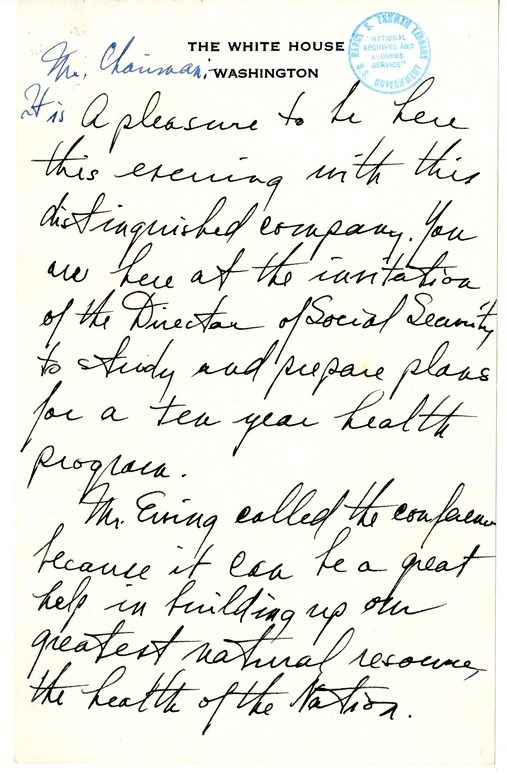 THE WHITE HOUSE
WASHINGTON
HARRY S. TRUMAN LIBRARY
"NATIONAL
ARCHIVES AND
RECORDS
SERVICE"
U.S. GOVERNMENT
Mr. Chairman;
It is A pleasure to be here
this evening with this
distinguished company. You
are here at the invitation
of the Director of Social Security
to study and prepare plans
for a ten year health
program.
Mr. Ewing called the conference
because it can be a great
help in building up our
greatest natural resource,
the health of the Nation.